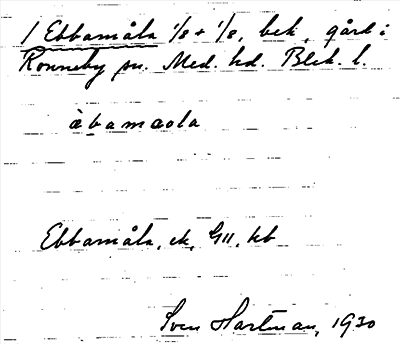 1 Ebbamåla 1/8 + 1/8, bek. gård i
Ronneby sn. Med. hd. Blek. l.
àbamaola
Ebbamåla, ek, G11, kb
Sven Hartman, 1930